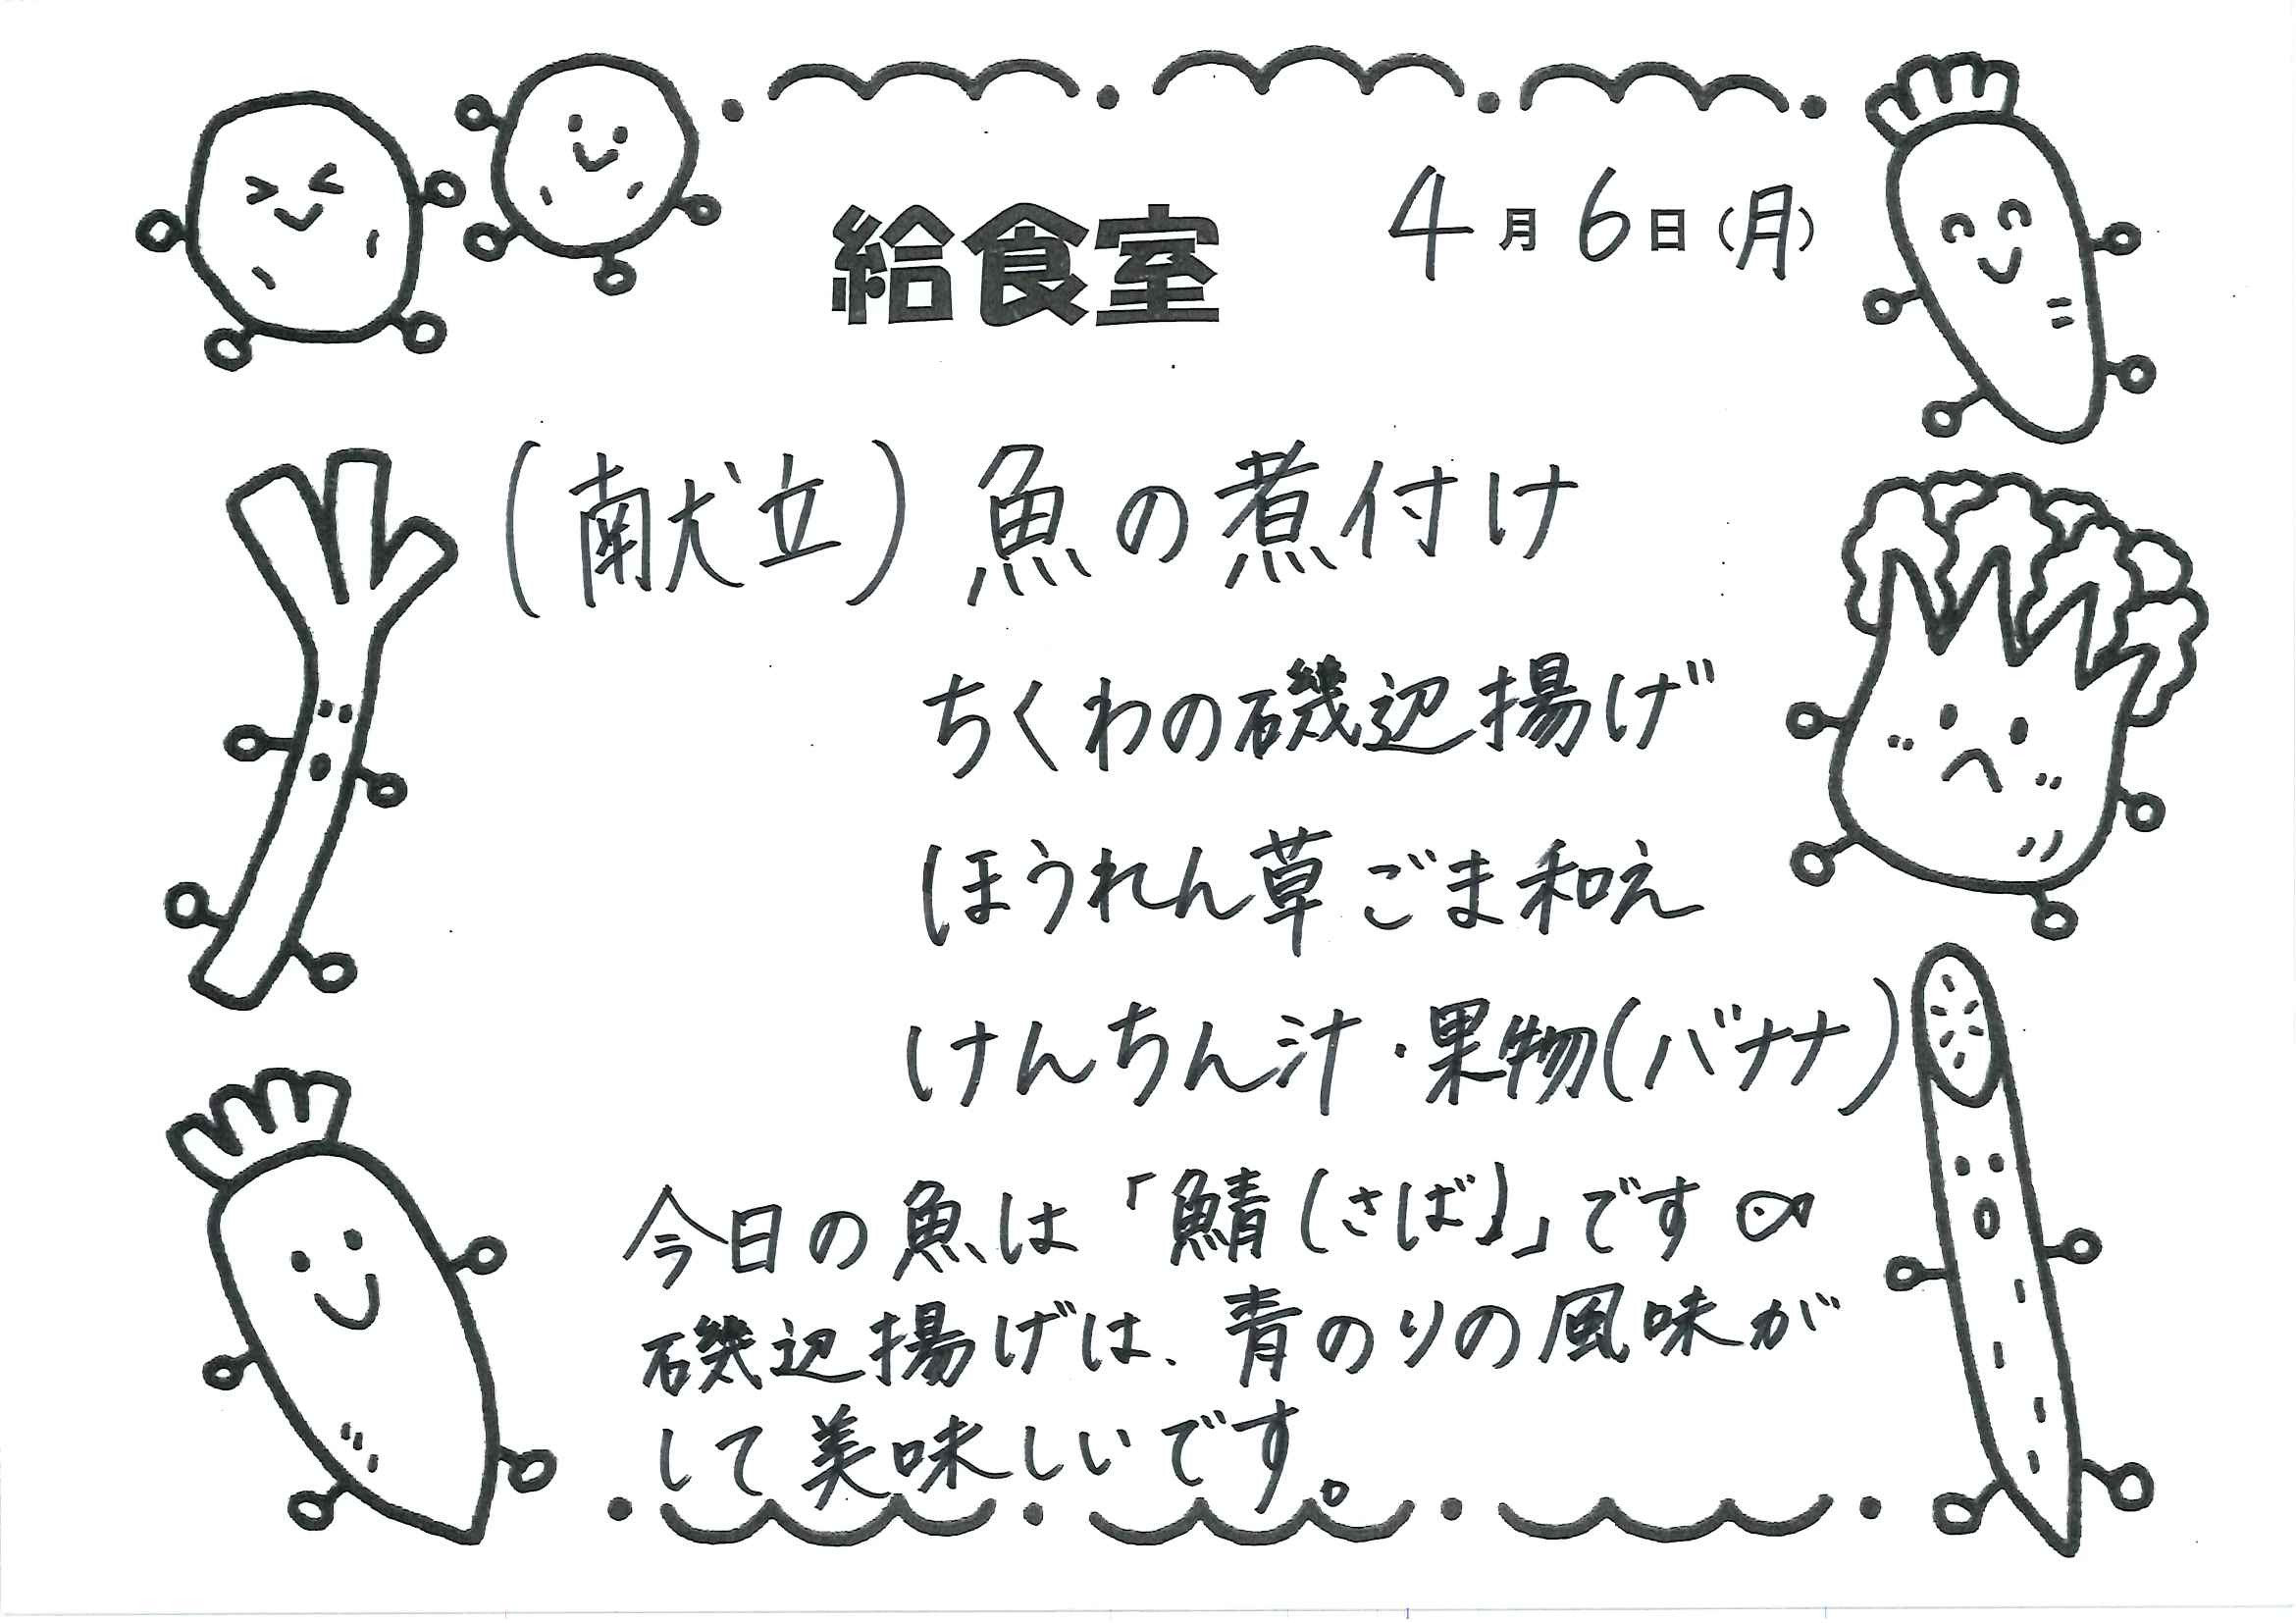 給食室
4月6日(月)
(献立)魚の煮付け
ちくわの磯辺揚げ
ほうれん草ごま和え
けんちん汁・果物(バナナ)
今日の魚は「鯖(さば)」です
磯辺揚げは、青のりの風味が
して美味しいです。